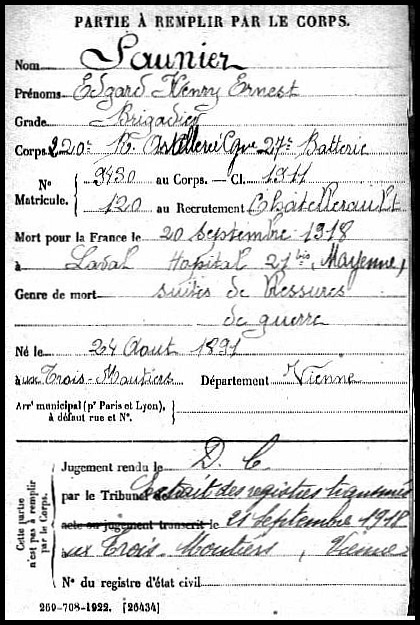 PARTIE À REMPLIR PAR LE CORPS.
Nom Saunier
Prénoms Edgard Henry Ernest
Grade Brigadier
Corps 220e R. Artillerie Cgne 27e Batterie
No 9430 au Corps. — Cl. 1911
Matricule. 120 au Recrutement Châtellerault
Mort pour la France le 20 Septembre 1918
à Laval Hopital 21 bis, Mayenne,
Genre de mort suites de Blessures
de guerre
Né le 24 Aout 1891
aux Trois-Moutiers Département Vienne
Arrt municipal (pr Paris et Lyon),
à défaut rue et No.
Cette partie
n'est pas à remplir
par le Corps.
Jugement rendu le D. C
par le Tribunal de Extrait des registres transmis
acte ou jugement transcrit le 21 Septembre 1918
aux Trois-Moutiers, Vienne
No du registre d'état civil
269-708-1922. [26434]